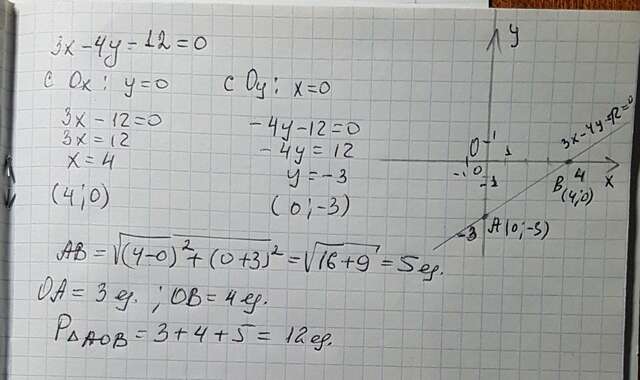 3x - 4y - 12 = 0
с Ox: y = 0
3x - 12 = 0
3x = 12
x = 4
(4; 0)
с Oy: x = 0
-4y - 12 = 0
-4y = 12
y = -3
(0; -3)
AB = √((4-0)² + (0+3)²) = √(16+9) = 5 ед.
OA = 3 ед.; OB = 4 ед.
P△AOB = 3 + 4 + 5 = 12 ед.
y
3x - 4y - 12 = 0
O 1 1
-1 0 4 x
-1 B (4; 0)
-3 A (0; -3)